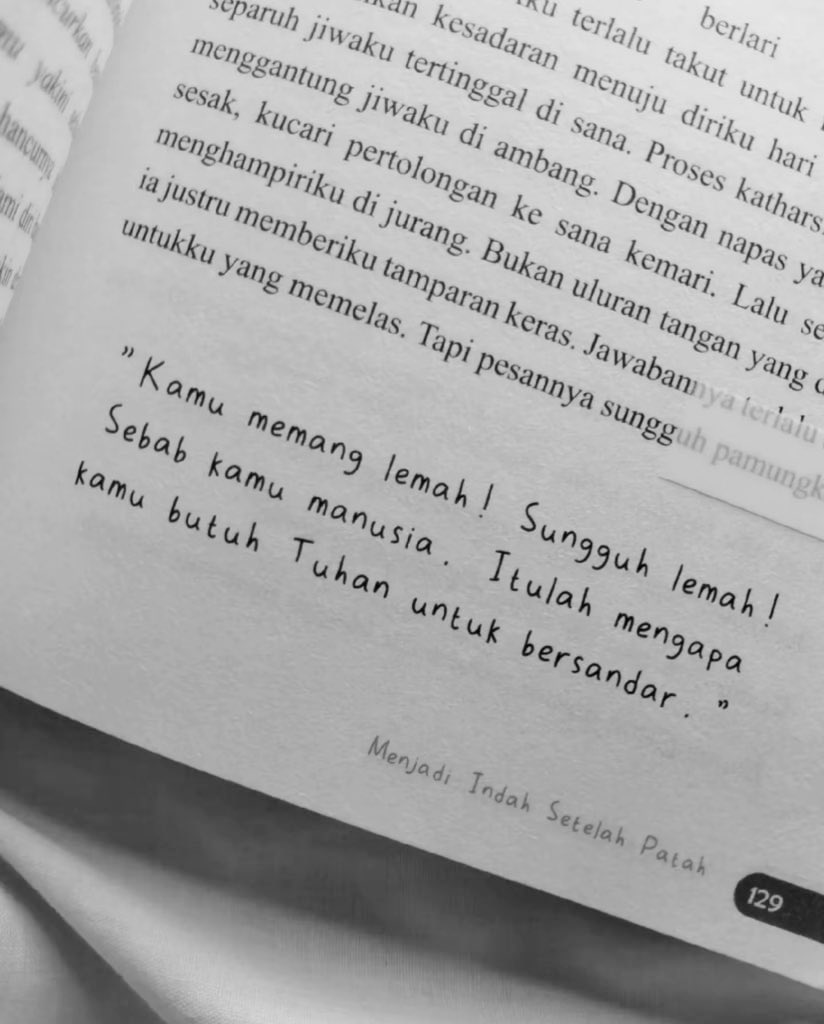 berlari
kesadaran menuju diriku hari
terlalu takut untuk
separuh jiwaku tertinggal di sana. Proses
menggantung jiwaku di ambang. Dengan napas
sesak, kucari pertolongan ke sana kemari. Lalu
menghampiriku di jurang. Bukan uluran tangan yang
ia justru memberiku tamparan keras. Jawabannya terlalu
untukku yang memelas. Tapi pesannya sungguh
"Kamu memang lemah! Sungguh lemah!
Sebab kamu manusia. Itulah mengapa
kamu butuh Tuhan untuk bersandar."
Menjadi Indah Setelah Patah
129